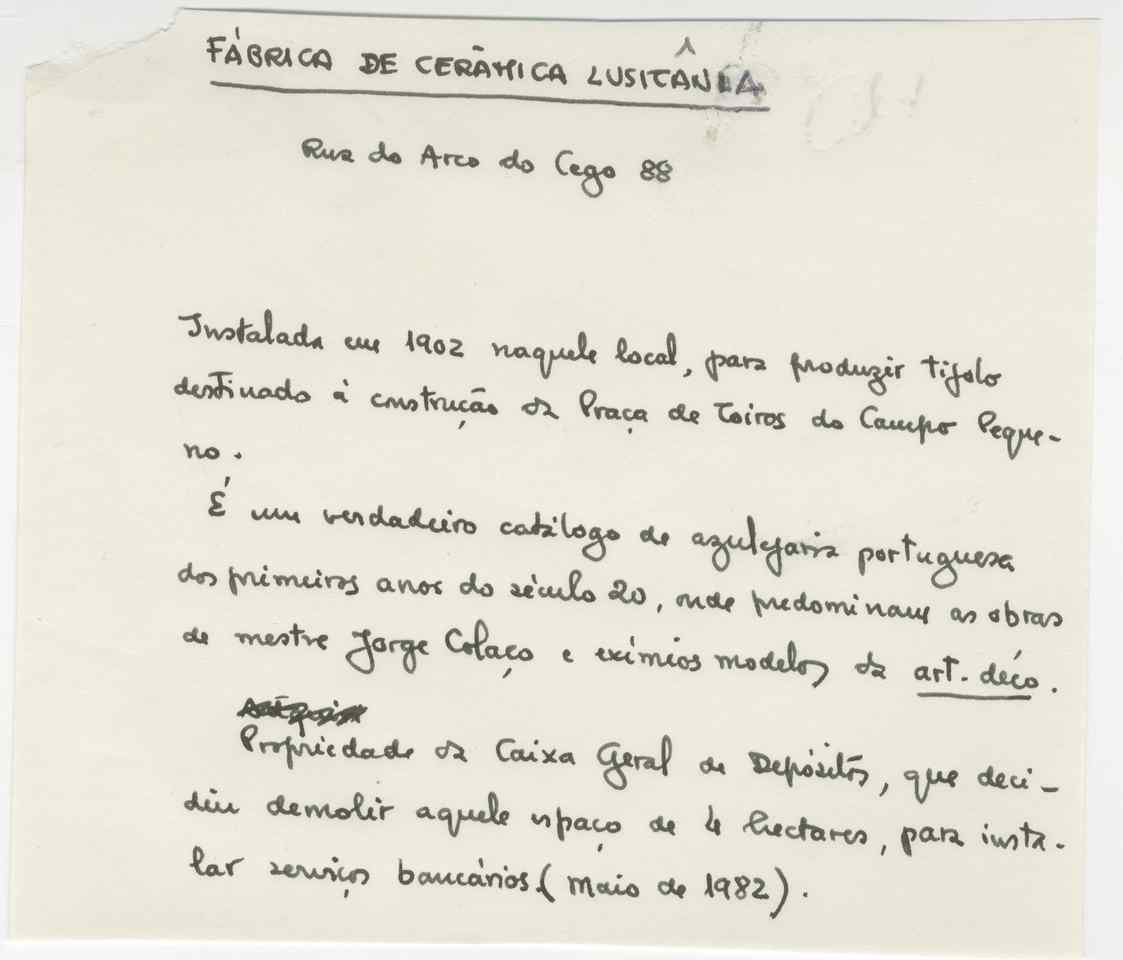 FÁBRICA DE CERÂMICA LUSITÂNIA
Rua do Arco do Cego 88
Instalada em 1902 naquele local, para produzir tijolo
destinado à construção da Praça de Toiros do Campo Peque-
no.
É um verdadeiro catálogo de azulejaria portuguesa
dos primeiros anos do século 20, onde predominam as obras
de mestre Jorge Colaço e exímios modelos da art. déco.
Propriedade da Caixa Geral de Depósitos, que deci-
diu demolir aquele espaço de 4 hectares, para insta-
lar serviços bancários (maio de 1982).